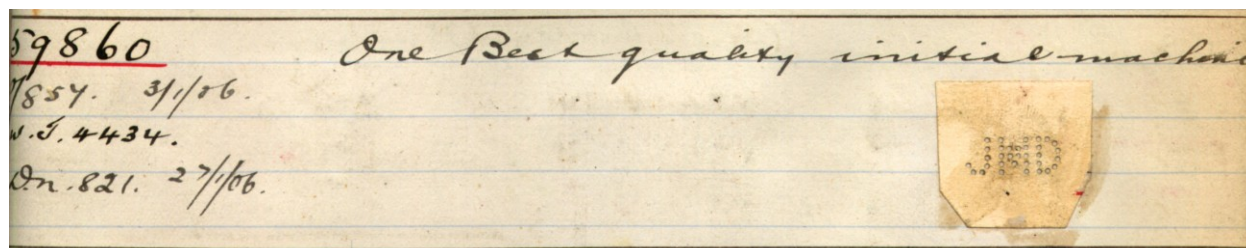 59860 One Best quality initial machine
/857. 3/1/06.
W.T. 4434.
Dn. 821. 27/1/06.